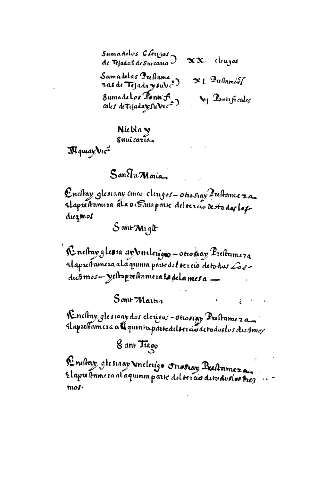 Suma de los Clerigos
de Tejada & su vicaria } XX clerigos
Suma de las Prestame
ras de Tejada y su Vic } XI Prestameras
Suma de los Pontifi
cales de Tejada y su Vic } VI Pontificales
Niebla y
su vicaria
Sancta Maria
En esta yglesia ay cinco clerigos - otrosi ay Prestamera
el a prestamera a la quinta parte del tercio de todos los
diezmos
Sant Migl
En esta yglesia ay un clerigo - otrosi ay Prestamera
el a prestamera a la quinta parte del tercio de todos Los
diezmos - y esta prestamera es de la mesa
Sant Martin
En esta yglesia ay dos clerigos - otrosi ay Prestamera
el a prestamera a la quinta parte del tercio de todos los diezmos
Sant Tiago
En esta yglesia ay un clerigo otrosi ay Prestamera
el a prestamera a la quinta parte del tercio de todos los diez
mos.